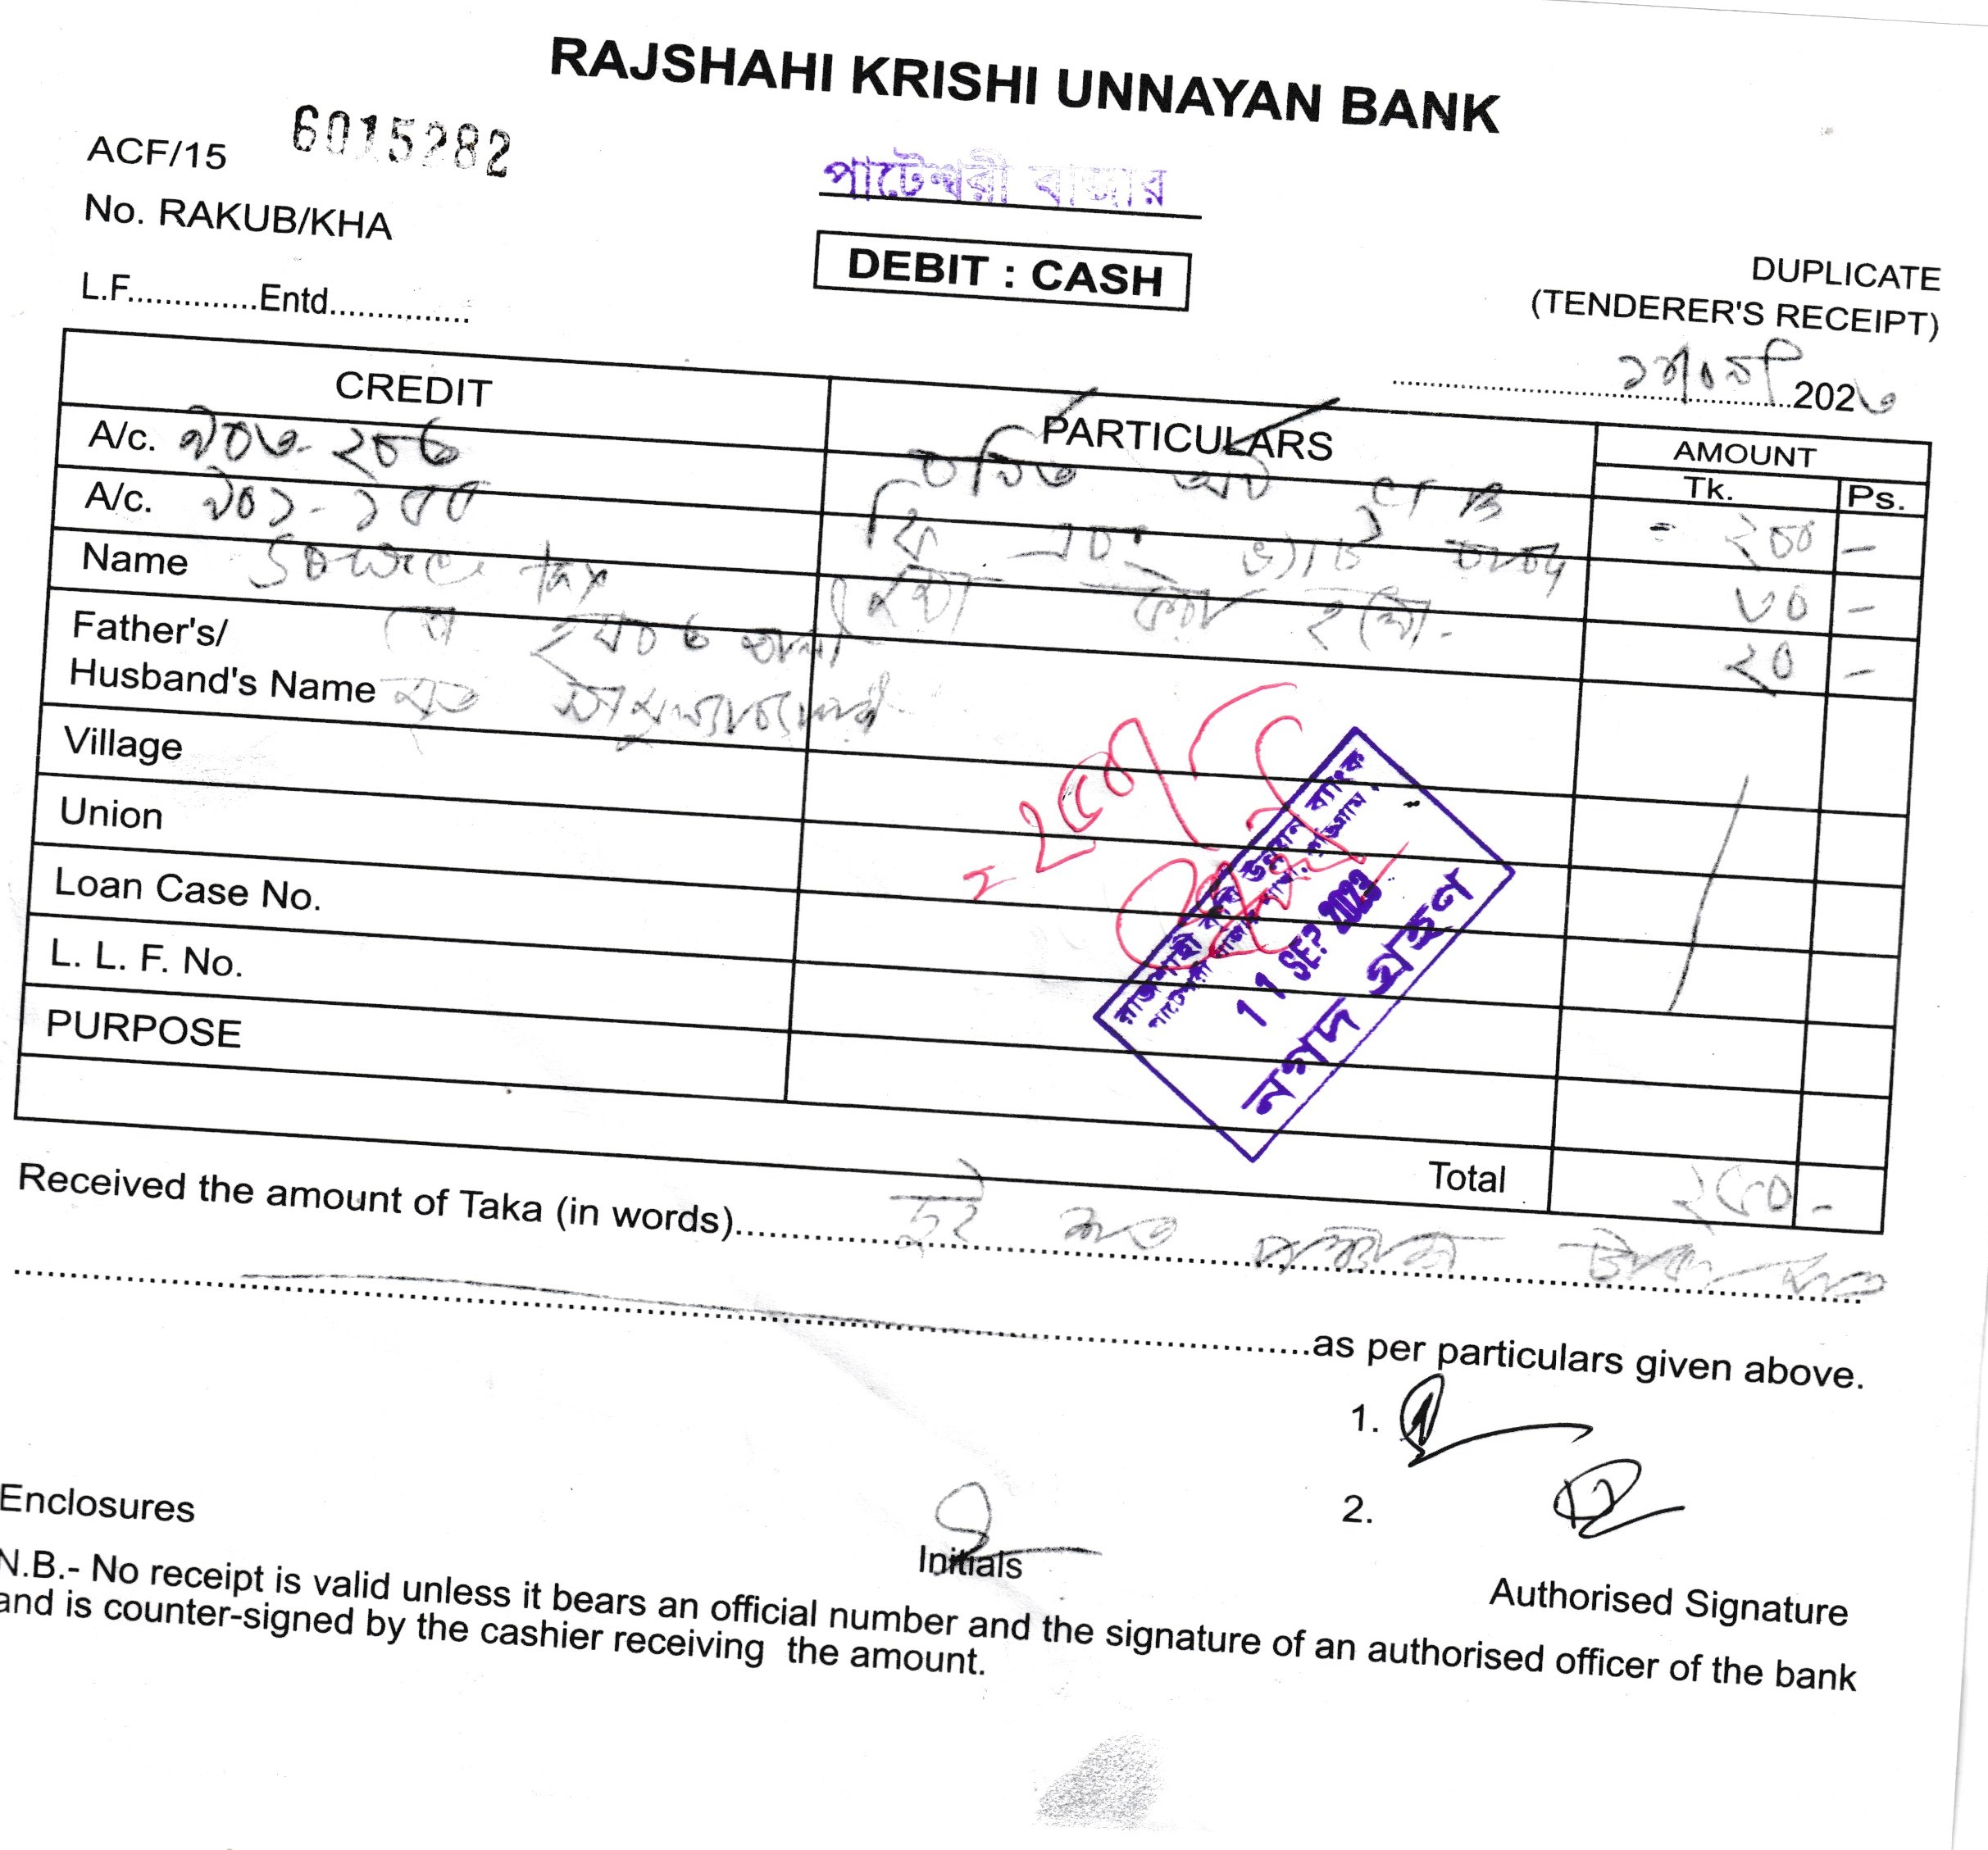 RAJSHAHI KRISHI UNNAYAN BANK
ACF/15 6015282
পাটেশ্বরী বাজার
No. RAKUB/KHA
DEBIT : CASH
DUPLICATE
(TENDERER'S RECEIPT)
L.F..............Entd...............
2023
CREDIT PARTICULARS AMOUNT
Tk. Ps.
A/c.
২০০ -
A/c.
ফি এবং ভ্যাট
৩০ -
Name Source tax
২০ -
Father's/
Husband's Name মৃত
Village
Union
Loan Case No.
L. L. F. No.
PURPOSE
= ২৫০/-
রাজশাহী কৃষি উন্নয়ন ব্যাংক
পাটেশ্বরী বাজার শাখা, কুড়িগ্রাম।
11 SEP 2023
নগদ গ্রহণ
Total ২৫০ -
Received the amount of Taka (in words) দুই শত পঞ্চাশ টাকা মাত্র
as per particulars given above.
1.
2.
Enclosures
Initials
Authorised Signature
N.B.- No receipt is valid unless it bears an official number and the signature of an authorised officer of the bank
and is counter-signed by the cashier receiving the amount.